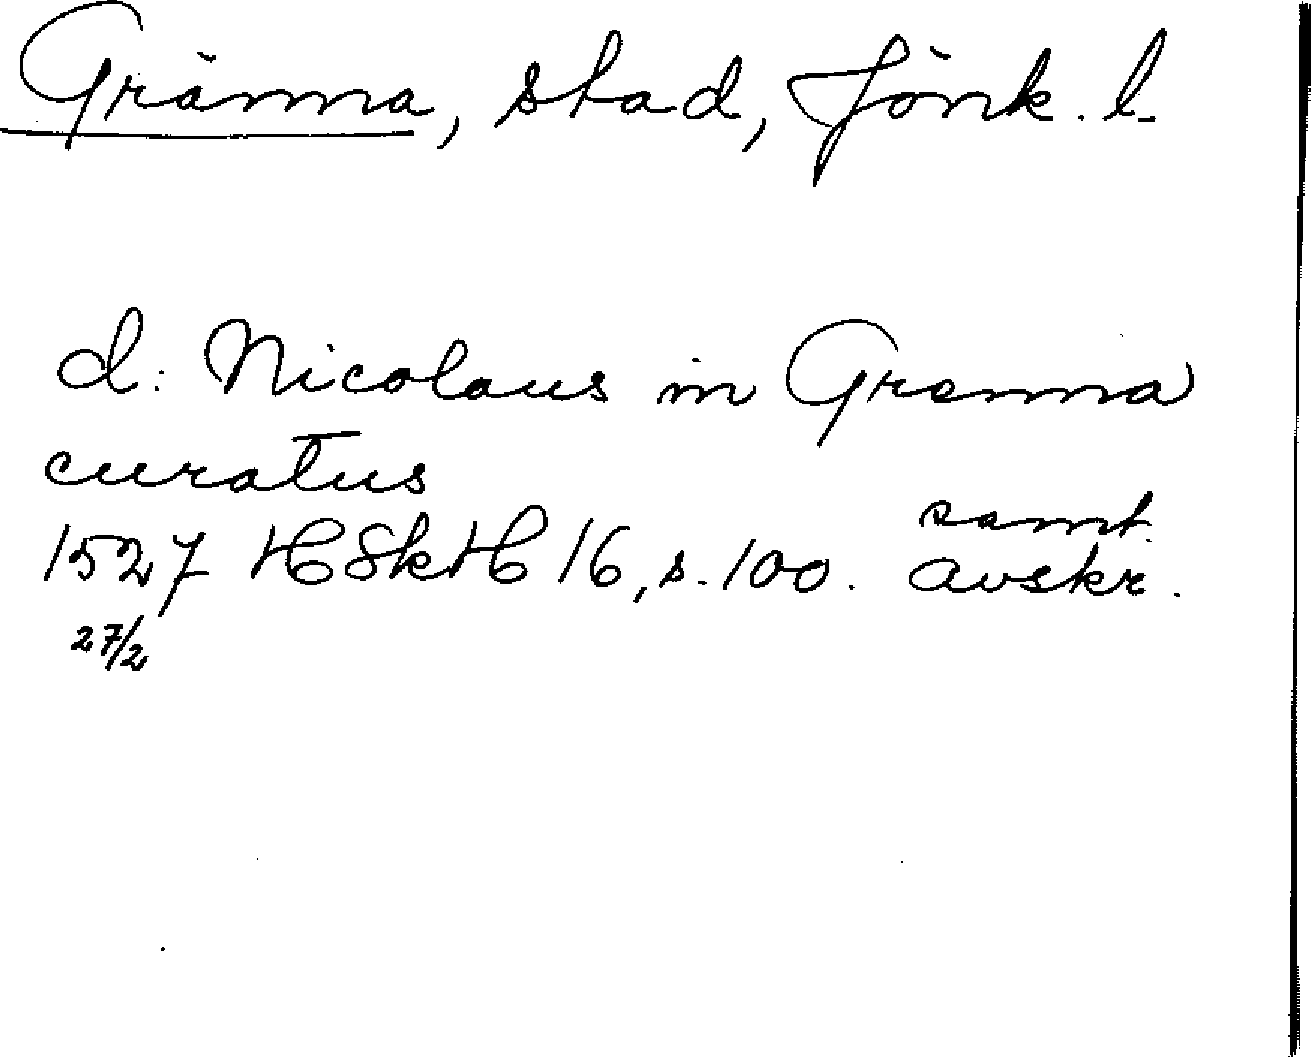 Gränna, stad, Jönk. l.
d: Nicolaus in Grenna
curatus
samt.
1527 HSkH 16, s. 100. avskr.
27/2